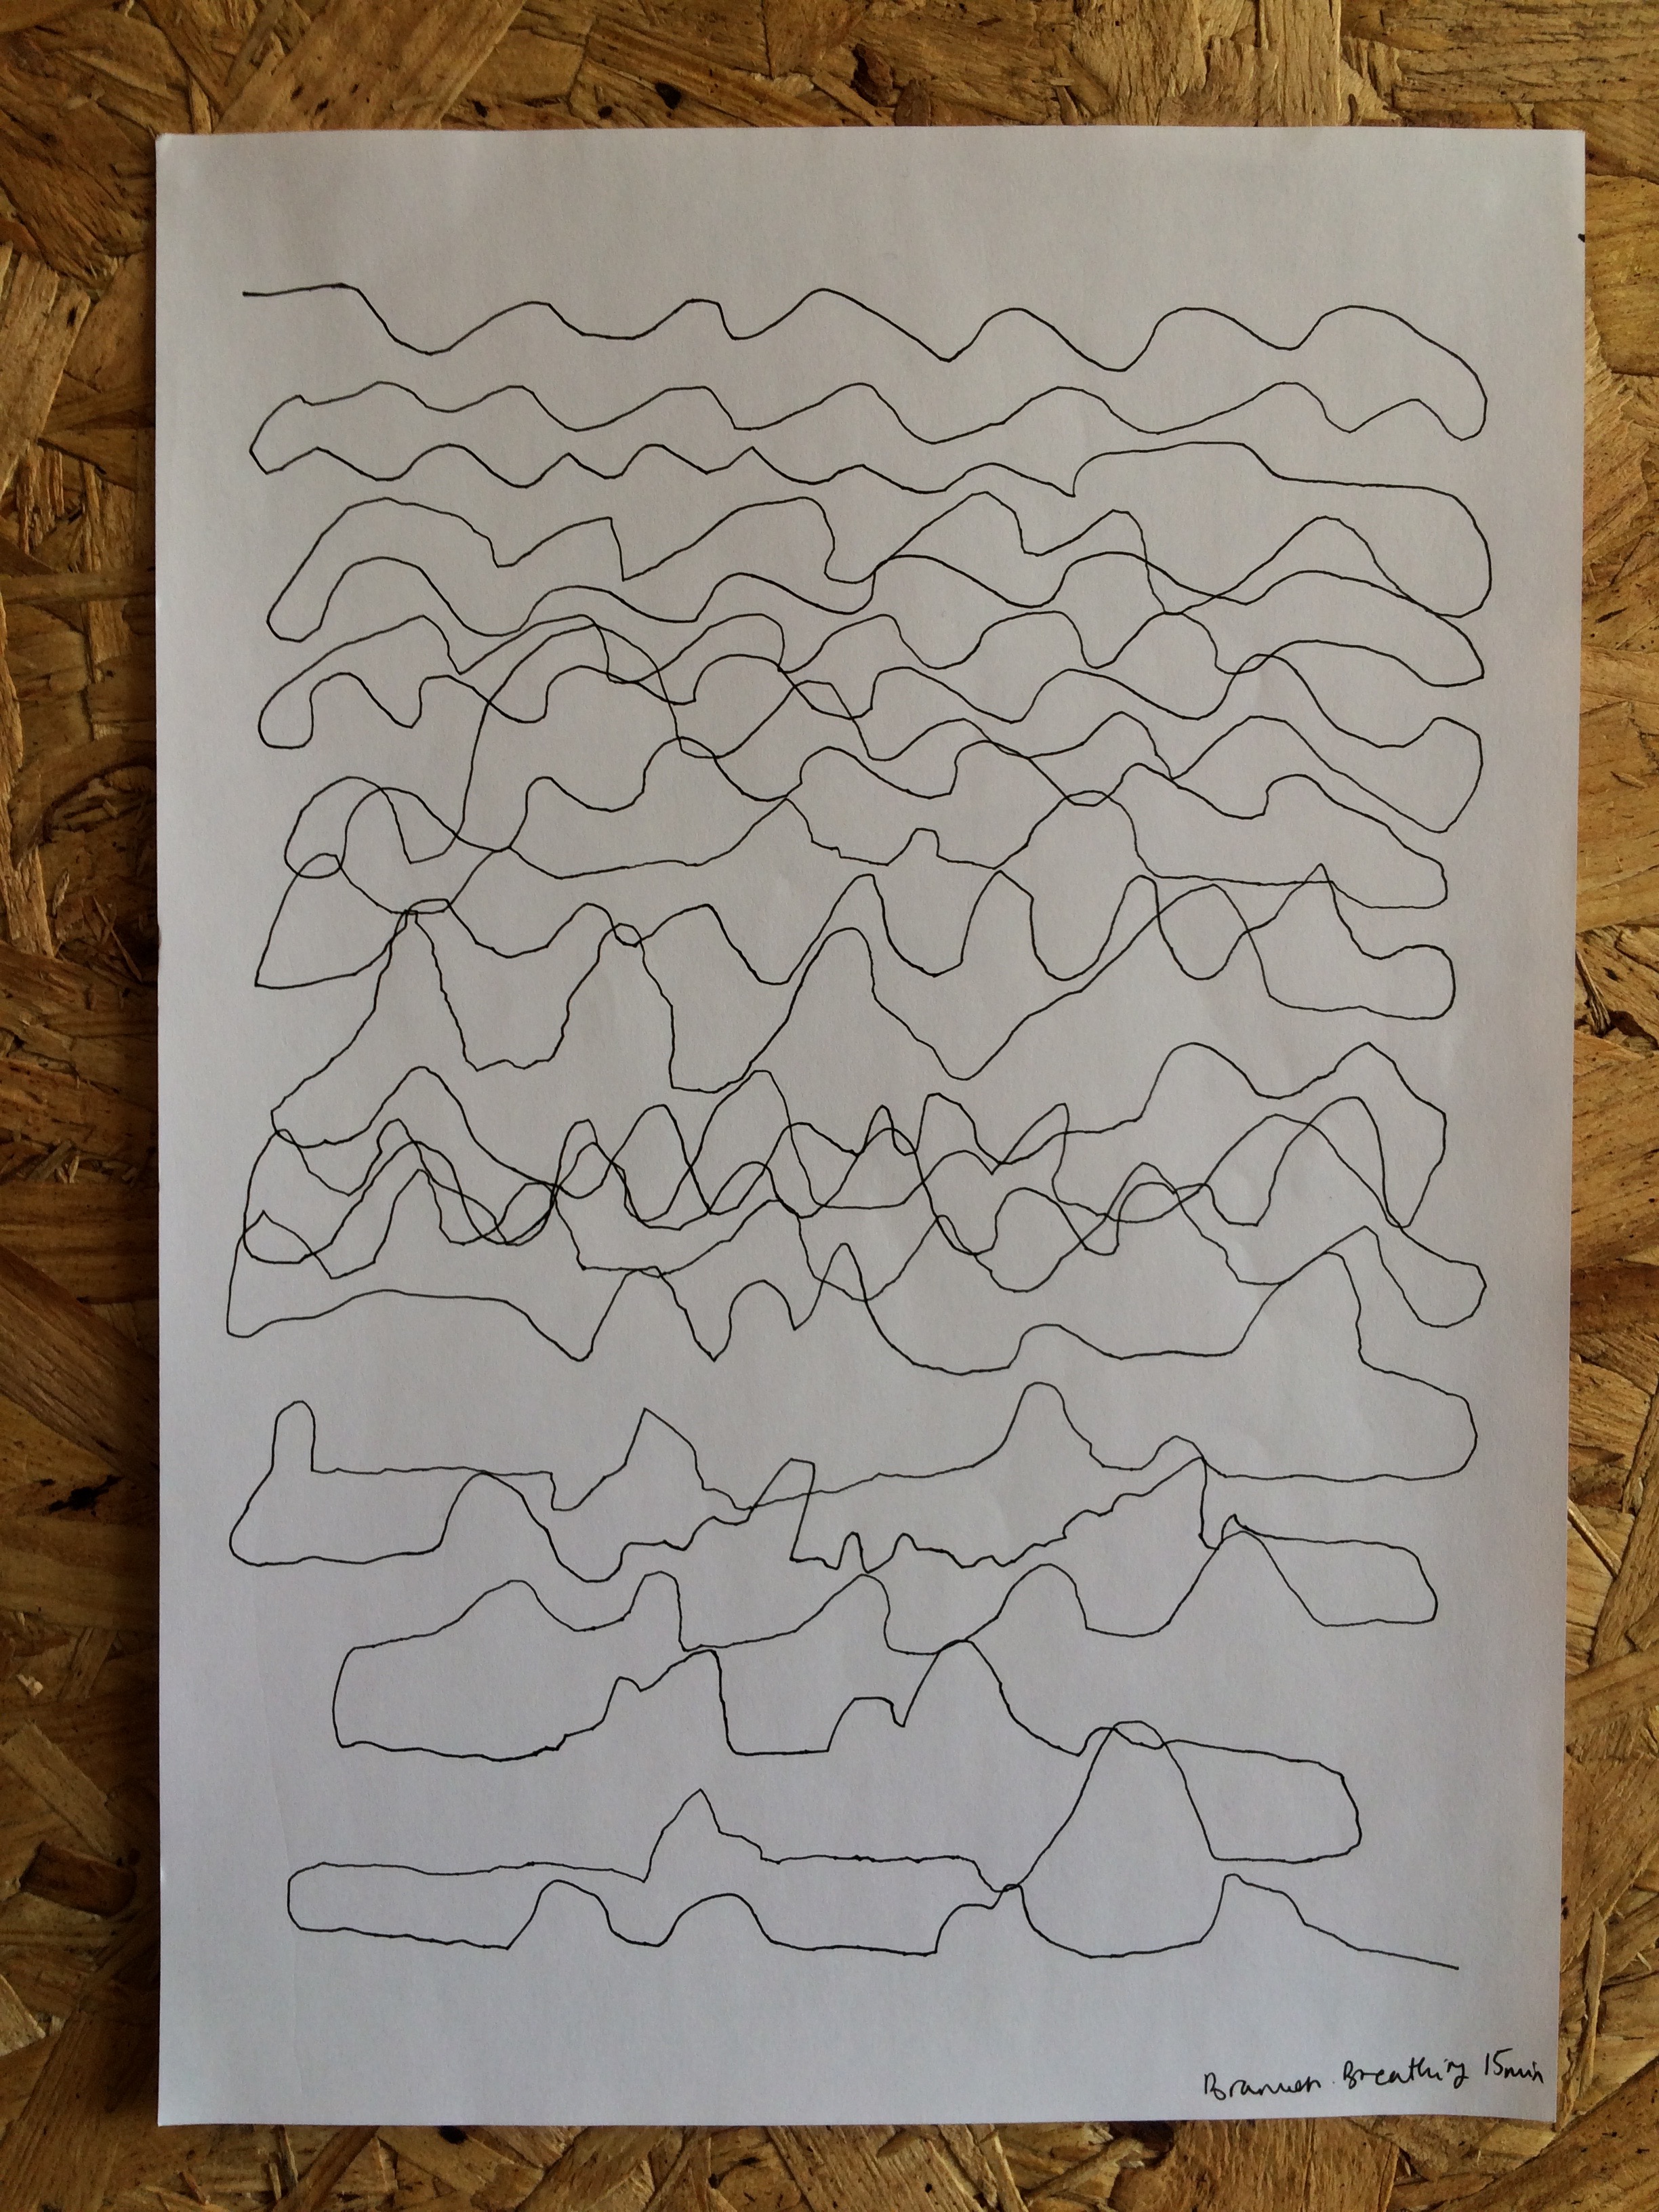 Branwen. Breathing 15min